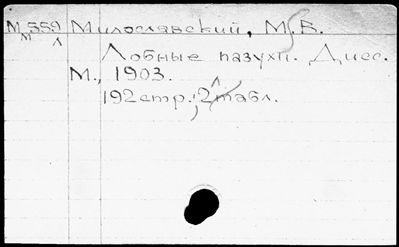 М 559 Милославский, М.В.
М л
Лобные пазухи. Дисс.
М., 1903.
192 стр.; 2 табл.